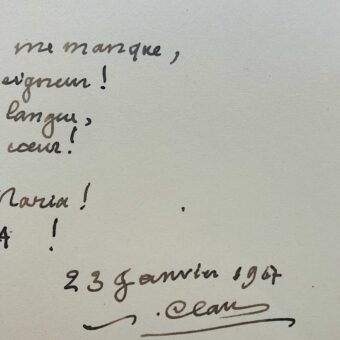 me manque,
eigneur !
langue,
cœur !
Maria !
A !
23 Janvier 1967